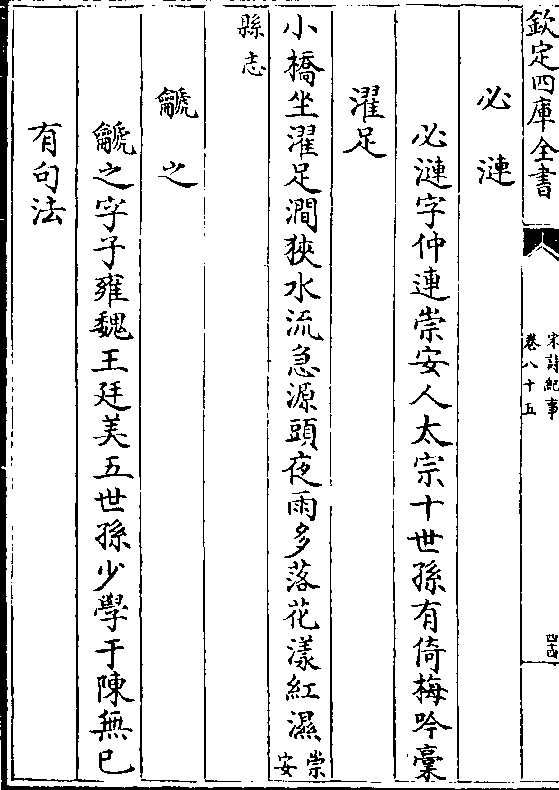 欽定四庫全書
宋詩紀事
卷八十五
必漣
必漣字仲連崇安人太宗十世孫有倚梅吟稾
濯足
小橋坐濯足澗狹水流急源頭夜雨多落花漾紅濕崇安
縣志
之
之字子雍魏王廷美五世孫少學于陳無已
有句法